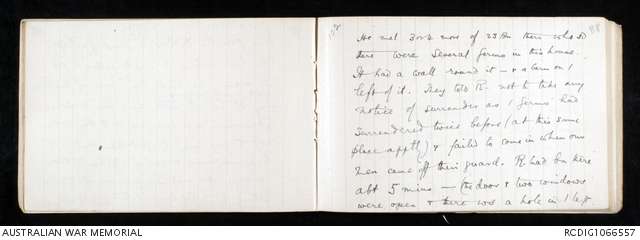 88
He met 3 or 4 more of 23 Bn there who sd
there were several Germs in this house.
It had a wall round it — & a barn on l
left of it. They told R. not to take any
notice of surrender as l Germs had
surrendered twice before (at this same
place apptly) & failed to come in when our
men came off their guard. R had bn here
abt 5 mins — the door & two windows
were open & there was a hole in l left
AUSTRALIAN WAR MEMORIAL
RCDIG1066557